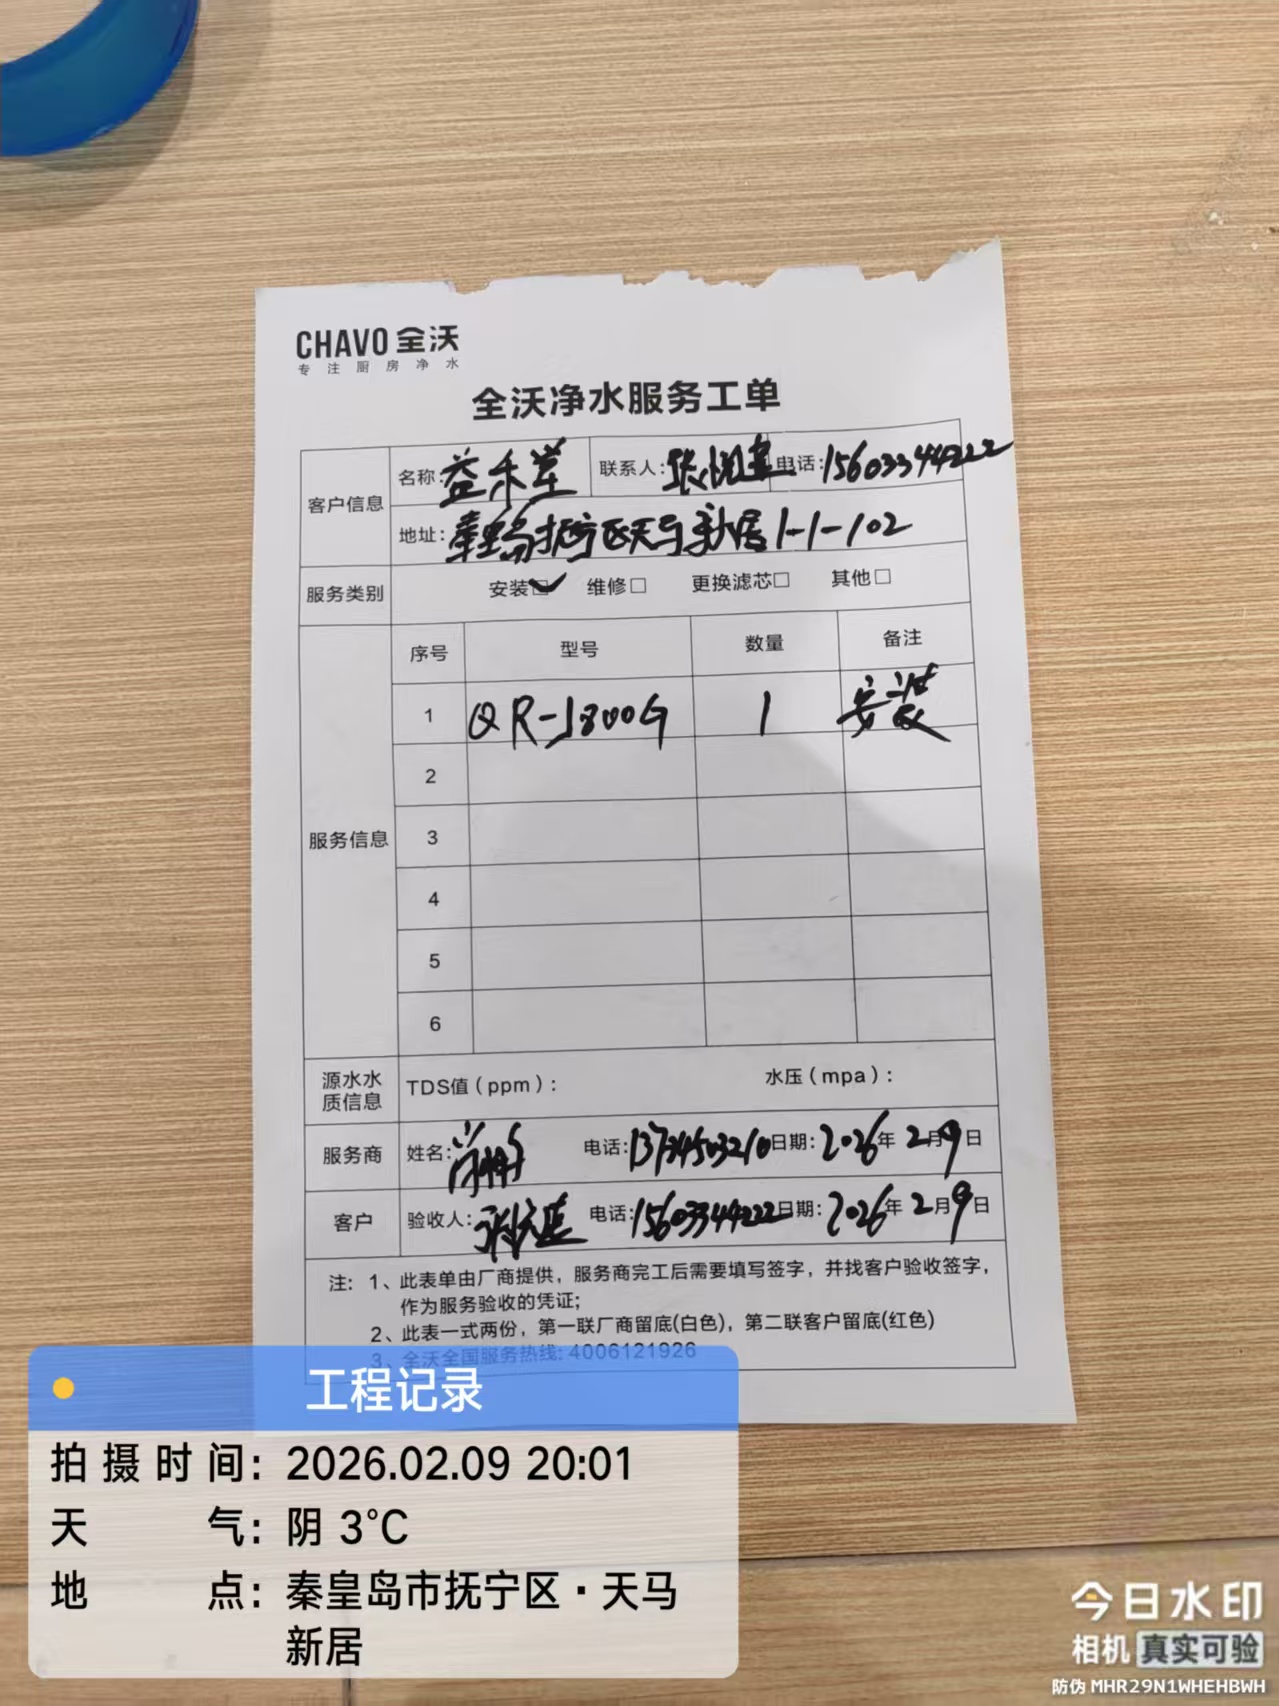 CHAVO 全沃
专注厨房净水
全沃净水服务工单
客户信息 名称:益禾堂 联系人:张悦 电话:15603344222
地址:秦皇岛抚宁区天马新居1-1-102
服务类别 安装☑ 维修□ 更换滤芯□ 其他□
服务信息 序号 型号 数量 备注
1 QR-J800G 1 安装
2
3
4
5
6
源水水质信息 TDS值(ppm): 水压(mpa):
服务商 姓名: 电话:13734503210 日期:2026年2月9日
客户 验收人:张 电话:15603344222 日期:2026年2月9日
注: 1、此表单由厂商提供，服务商完工后需要填写签字，并找客户验收签字，
作为服务验收的凭证；
2、此表一式两份，第一联厂商留底(白色)，第二联客户留底(红色)
3、全沃全国服务热线: 4006121926
工程记录
拍摄时间: 2026.02.09 20:01
天气: 阴 3℃
地点: 秦皇岛市抚宁区·天马
新居
今日水印
相机 真实可验
防伪 MHR29N1WHEHBWH